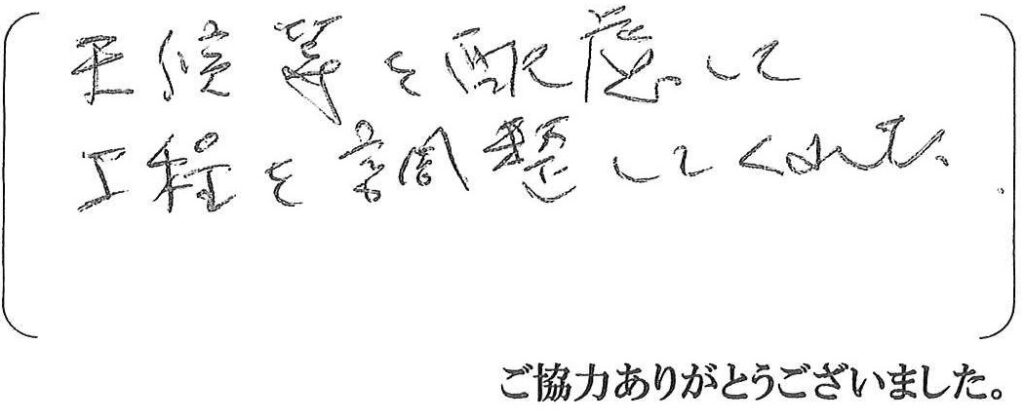 天候等を配慮して
工程を調整してくれた。
ご協力ありがとうございました。